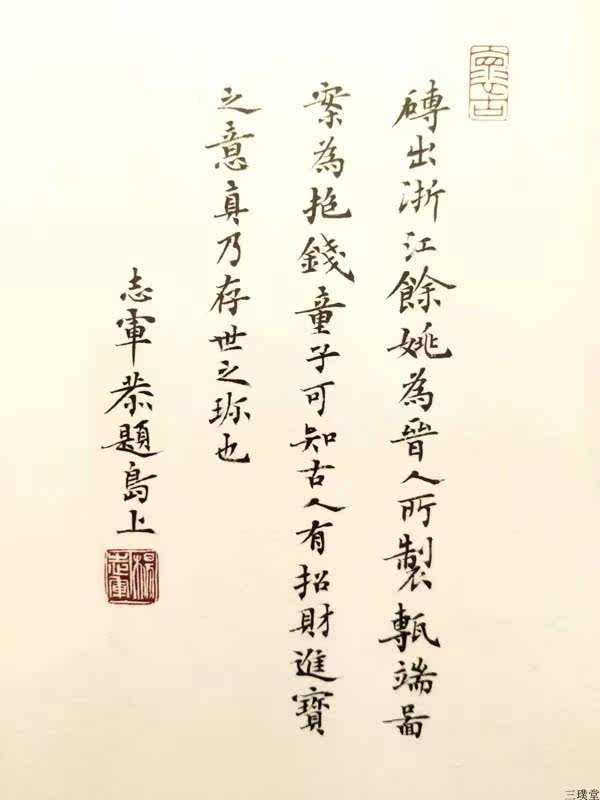 磚出浙江餘姚為晉人所製甎端啚
案為抱錢童子可知古人有招財進寶
之意真乃存世之珎也
志軍恭題島上
三璞堂